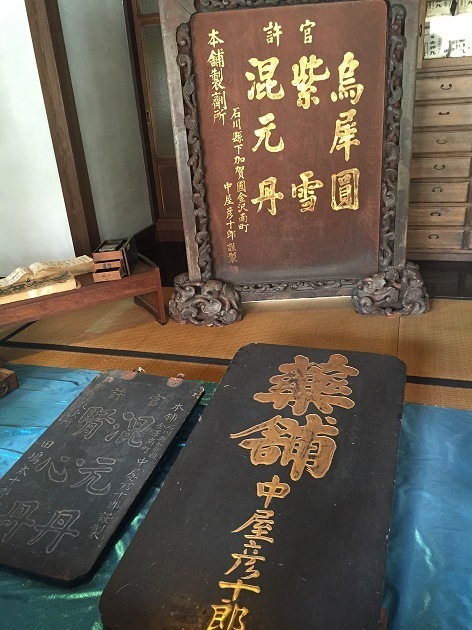 官許
烏犀圓
紫雪
混元丹
石川縣下加賀國金沢南町
中屋彦十郎謹製
本舗製劑所
藥舗
中屋彦十郎
官許
中屋彦十郎謹製
混元丹
腎心丹